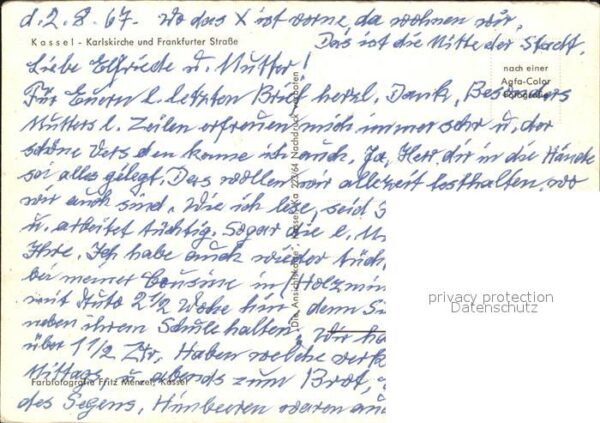 d. 2. 8. 67. Wo das X ist vorne, da wohnen wir,
Das ist die Mitte der Stadt,
Kassel - Karlskirche und Frankfurter Straße
Liebe Elfriede u. Mutter!
nach einer
Agfa-Color
Fotografie
Für Euern l. letzten Brief herzl. Dank, Besonders
Mutters l. Zeilen erfreuen mich immer sehr u. der
schöne Vers den kenne ich auch. Ja, Herr dir in die Hände
sei alles gelegt. Das wollen wir allezeit festhalten, wo
wir auch sind. Wie ich lese, seid
u. arbeitet tüchtig. Sogar die l.
Ihre. Ich habe auch wieder
bei meiner Cousine in
mit Auto 2 1/2 Woche hin denn
neben ihrem Schule halten, Wir
über 1 1/2 Ztr. Haben welche
Mittags u. abends zum Brot,
des Segens, Himbeeren waren
Farbfotografie Fritz Menzel, Kassel
"Die Ansichtskarte", Kassel Ka 22/64 Nachdruck verboten
privacy protection
Datenschutz